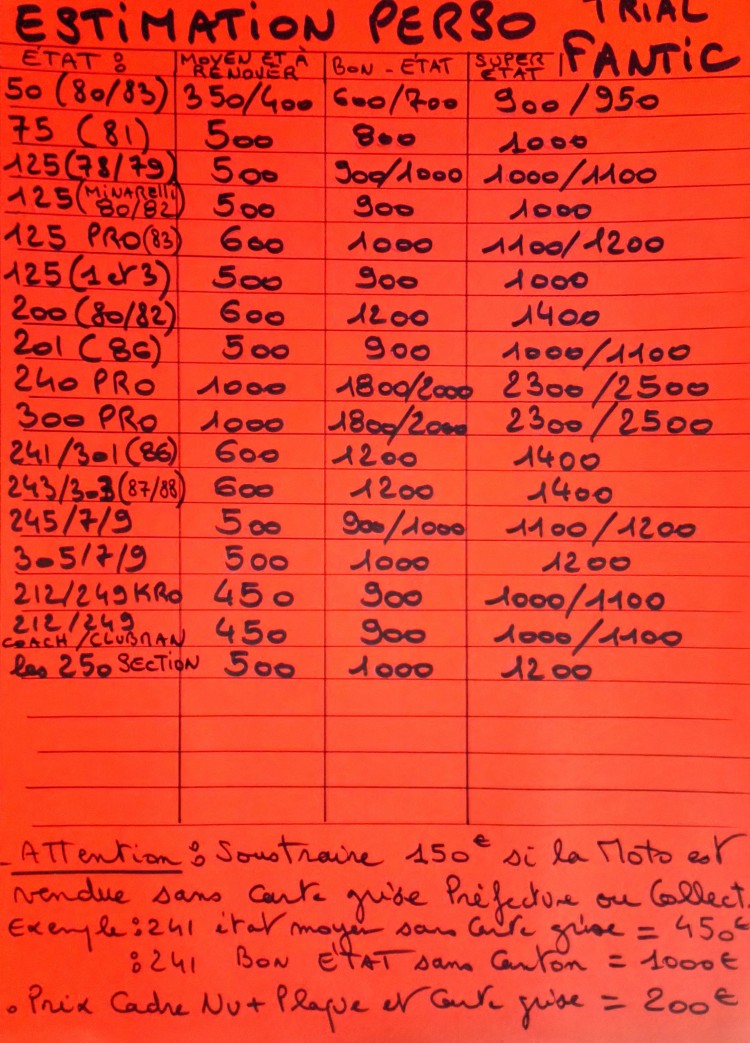 ESTIMATION PERSO TRIAL FANTIC
ÉTAT : MOYEN ET À RÉNOVER BON-ÉTAT SUPER ÉTAT
50 (80/83) 350/400 600/700 900/950
75 (81) 500 800 1000
125(78/79) 500 900/1000 1000/1100
125(MINARELLI 80/82) 500 900 1000
125 PRO(83) 600 1000 1100/1200
125(1 et 3) 500 900 1000
200(80/82) 600 1200 1400
201 (86) 500 900 1000/1100
240 PRO 1000 1800/2000 2300/2500
300 PRO 1000 1800/2000 2300/2500
241/301(86) 600 1200 1400
243/303(87/88) 600 1200 1400
245/7/9 500 900/1000 1100/1200
305/7/9 500 1000 1200
212/249 KRO 450 900 1000/1100
212/249 COACH/CLUBRAN 450 900 1000/1100
les 250 SECTION 500 1000 1200
- ATTention : Soustraire 150€ si la Moto est
vendue sans carte grise Préfecture ou Collect.
Exemple : 241 état moyen sans carte grise = 450€
: 241 BON ÉTAT sans Carton = 1000€
. Prix Cadre Nu + Plaque et Carte grise = 200€